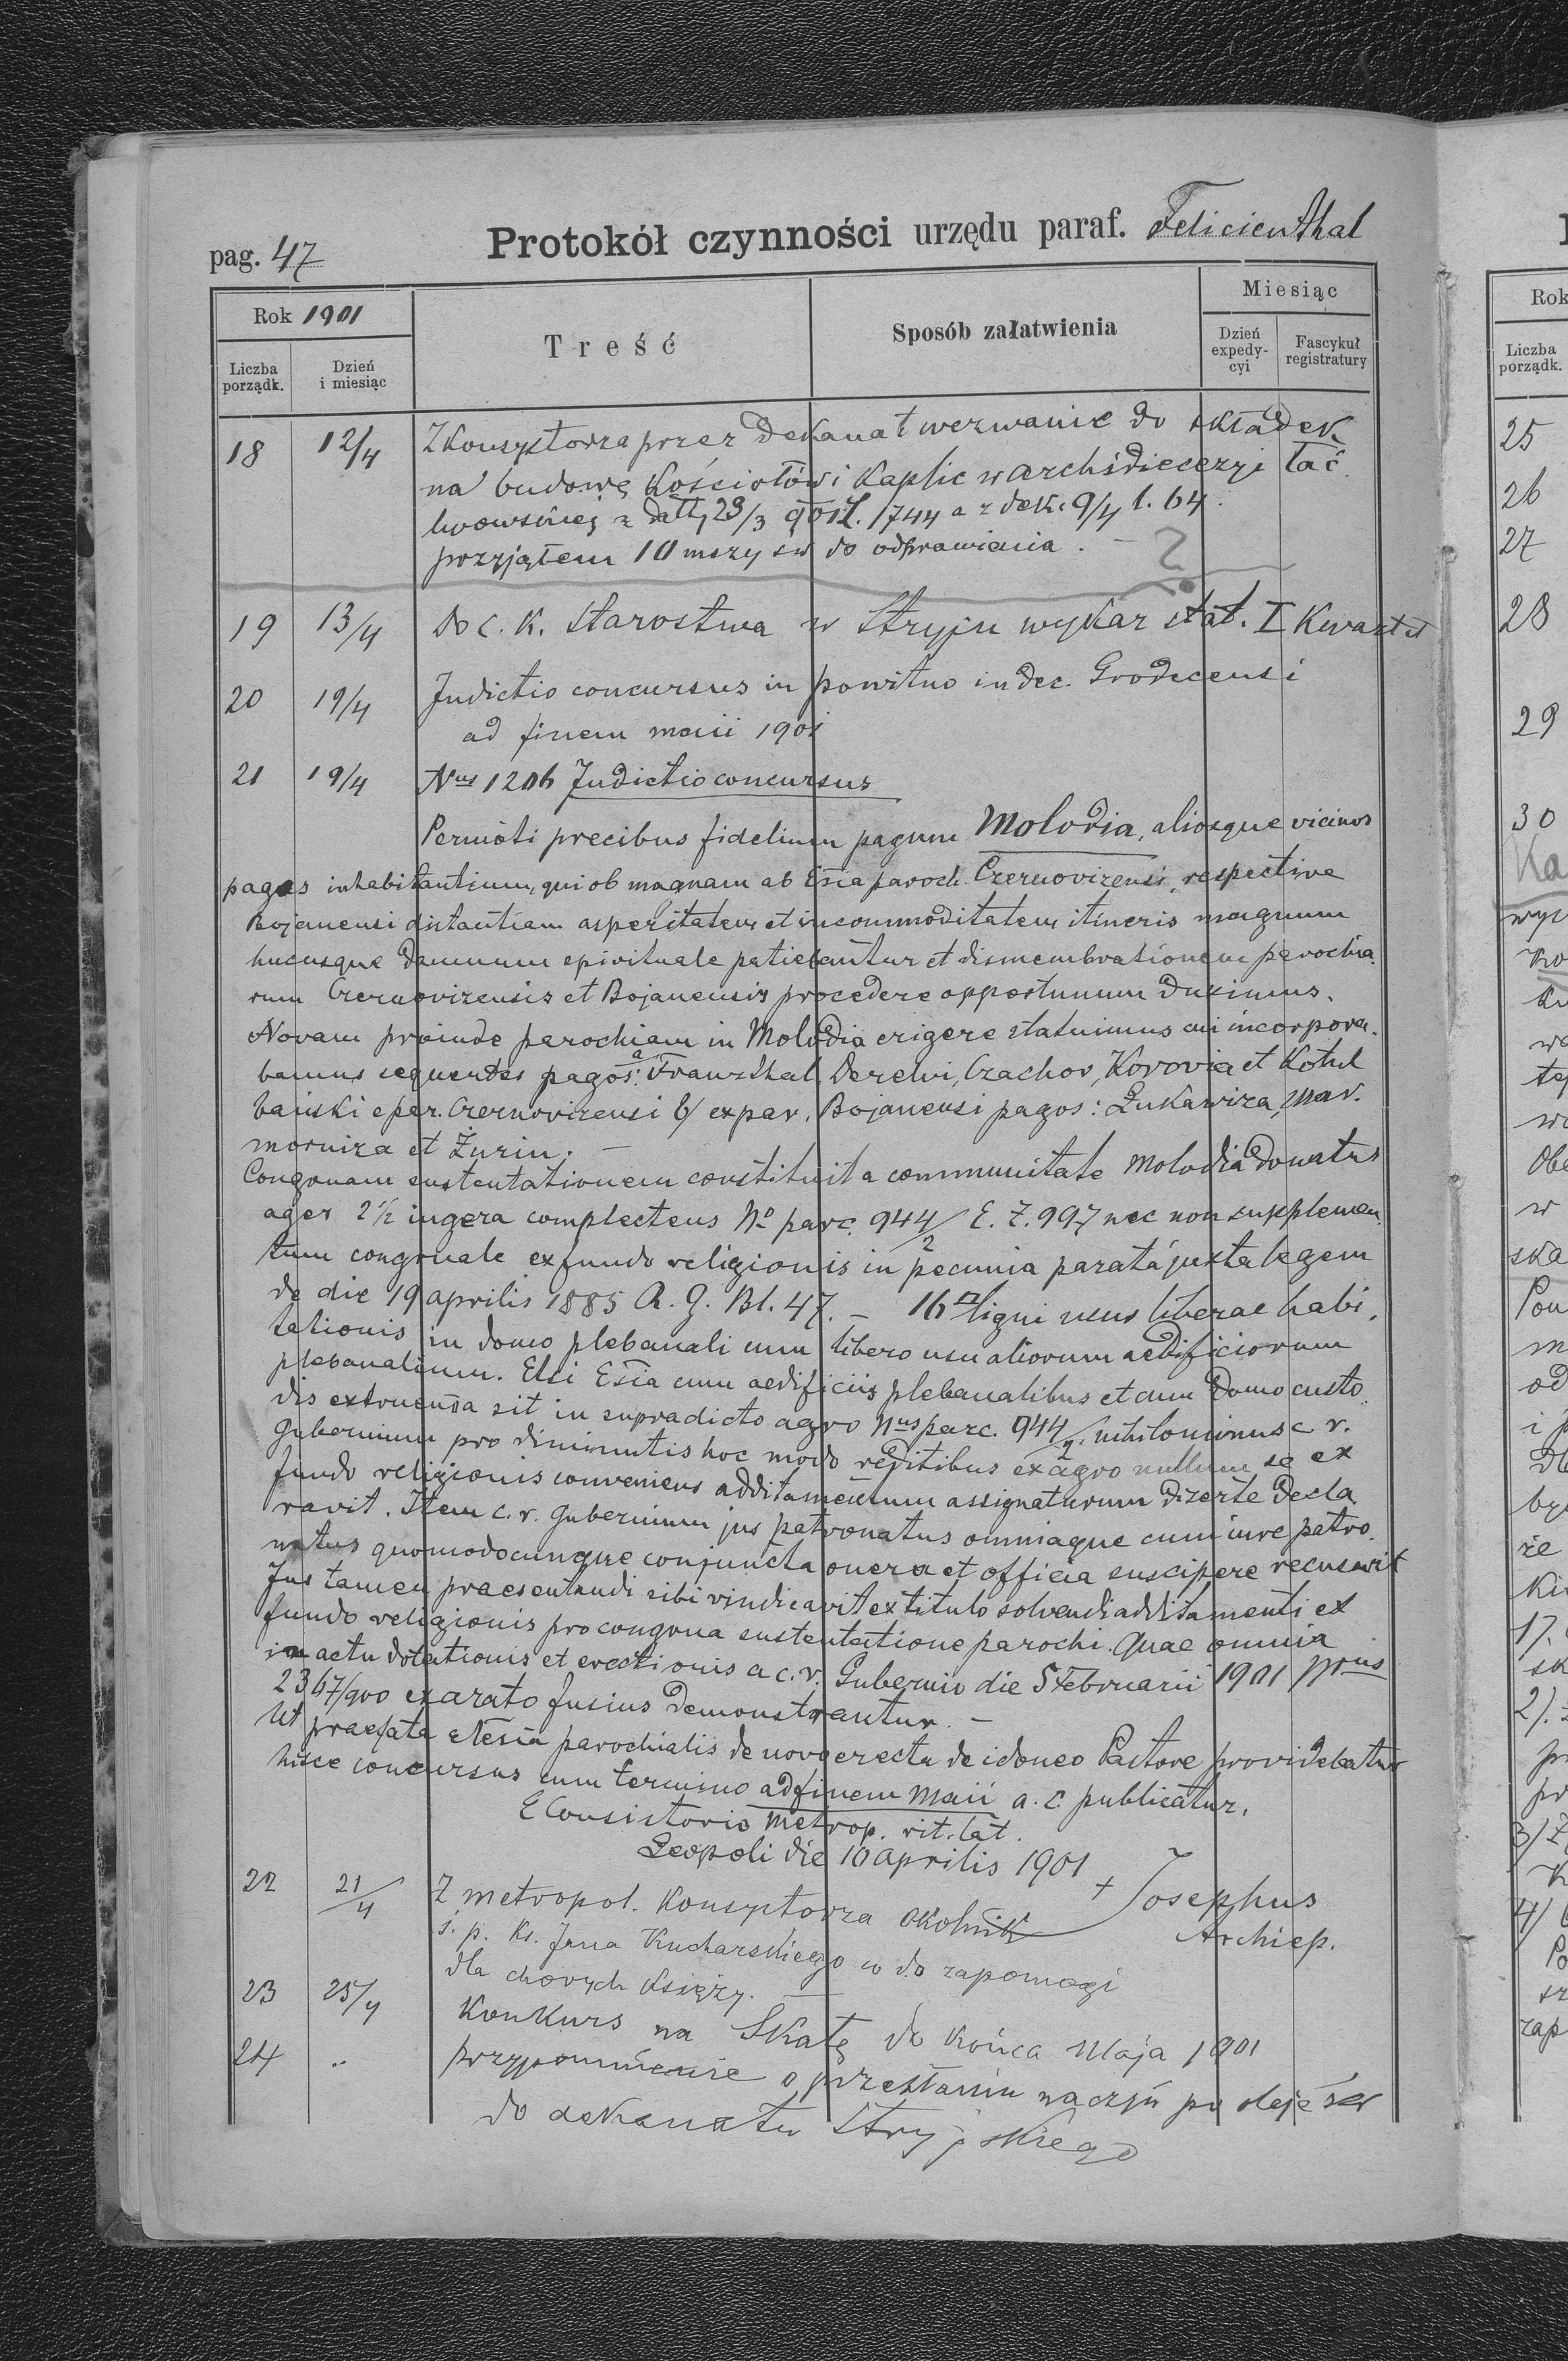 pag. 47 Protokół czynności urzędu paraf. Felicienthal
Rok 1901 Treść Sposób załatwienia Miesiąc
Liczba porządk. Dzień i miesiąc Dzień expedy-cyi Fascykuł registratury
18 12/4 Z Konsystorza przez dekanat wezwanie do składek
na budowę Kościołów i Kaplic w archidiecezyi łać.
lwowskiej z daty 29/3 901 l. 1744 a z dek. 9/4 l. 64.
przyjąłem 10 mszy św do odprawiania. – ?
19 13/4 Do c. k. Starostwa w Stryju wykaz stat. I Kwartał
20 19/4 Indictio concursus in powitno in dec. Grodecensi
ad finem maii 1901
21 19/4 Nus 1206 Indictio concursus
Permoti precibus fidelium pagum Molodia, aliosque vicinos
pagos inhabitantium, qui ob magnam ab Esia paroch. Czernovizensi, respective
Bojanensi distantiam asperitatem et incommoditatem itineris magnum
hucusque damnum spirituale patiebantur et dismembrationem parochia.
rum Czernovizensis et Bojanensis procedere opportunum duximus.
Novam proinde parochiam in Molodia erigere statuimus cui incorpora.
bamus sequentes pagos: a Franzthal, Derelui, Czachor, Korovia et Kotul
bański e par. Czernovizensi b/ ex par. Bojanensi pagos: Lukawiza, Mar.
morniza et Żurin. –
Congruam sustentationem constituit a communitate Molodia donatus
ager 2½ iugera complectens No parc. 944/2 E. Z. 997 nec non supplemen.
tum congruale ex fundo religionis in pecunia parata juxta legem
de die 19 aprilis 1885 R. G. Bl. 47. – 16 ligni usus liberae habi.
tationis in domo plebanali cum libero usu aliorum aedificiorum
plebanalium. Etsi Esia cum aedificiis plebanalibus et cum domo custo.
dis extruenda sit in supradicto agro Nus parc. 944/2, nihilominus c. r.
Gubernium pro diminutis hoc modo reditibus ex agro nullum se ex
fundo religionis conveniens additamentum assignaturum diserte decla.
ravit. Item c. r. Gubernium jus patronatus omniaque cum iure patro.
natus quomodocunque conjuncta onera et officia suscipere recusavit
Jus tamen praesentandi sibi vindicavit ex titulo solvendi additamenti ex
fundo religionis pro congrua sustentatione parochi. Quae omnia
in actu dotationis et erectionis a c. r. Gubernio die 5 Februarii 1901 Nrus
2367/900 exarato fusius demonstrantur. –
Ut praefata eclesia parochialis de novo erecta de idoneo Pastore providebatur
hisce concursus cum termino ad finem Maii a. c. publicatur.
E Consistorio Metrop. rit. lat.
Leopoli die 10 aprilis 1901
+ Josephus
Archiep.
22 21/4 Z metropol. Konsystorza okolnik
ś. p. Ks. Jana Kucharskiego co do zapomogi
dla chorych Księży. –
23 25/4 Konkurs na Skałę do końca Maja 1901
24 " przypomnienie o przesłaniu naczyń po oleje św
do dekanatu Stryjskiego